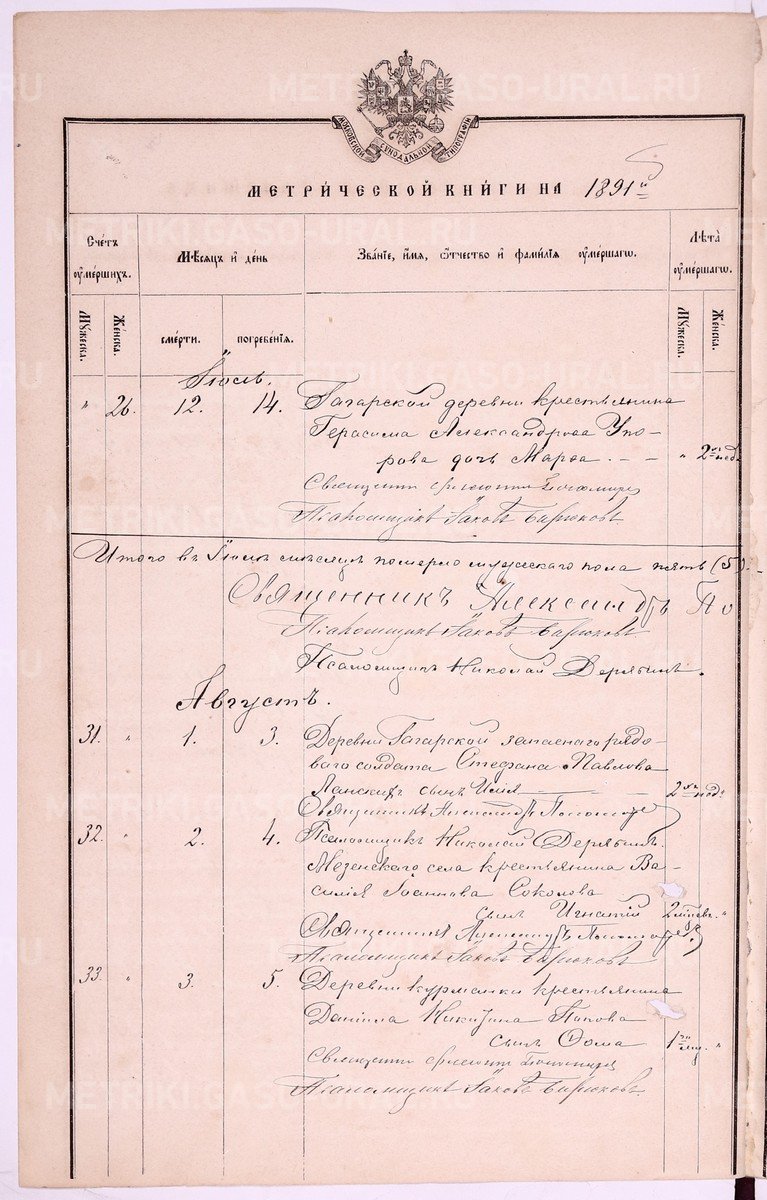 МОСКОВСКОЙ СѴНОДАЛЬНОЙ ТИПОГРАФІИ
МЕТРИЧЕСКОЙ КНИГИ НА 1891й
Счетъ умершихъ.
Мѣсяцъ и день
Званіе, имя, отчество и фамилія умершаго.
Лѣта умершаго.
Мужеска.
Женска.
смерти.
погребенія.
Мужеска.
Женска.
Іюль.
" 26. 12. 14. Гагарской деревни крестьянина
Герасима Александрова Упо-
рова дочь Марѳа. - - " 2хъ нед.
Священникъ
Псаломщикъ Іаковъ Бирюковъ
Итого въ Іюлѣ мѣсяцѣ померло мужескаго пола пять (5).
Священникъ Александръ По
Псаломщикъ Іаковъ Бирюковъ
Псаломщикъ Николай Дерябинъ.
Августъ.
31. " 1. 3. Деревни Гагарской запаснаго рядо-
ваго солдата Стефана Павлова
сынъ Илія 2хъ нед. "
Священникъ Александръ
32. " 2. 4. Псаломщикъ Николай Дерябинъ.
Мезенскаго села крестьянина Ва-
силія Іоаннова Соколова
сынъ Игнатій 2 "
Священникъ Александръ
Псаломщикъ Іаковъ Бирюковъ
33. " 3. 5. Деревни Курманки крестьянина
Даніила Никитина Попова
сынъ Ѳома 1 "
Священникъ
Псаломщикъ Іаковъ Бирюковъ.
METRIKI.GASO-URAL.RU